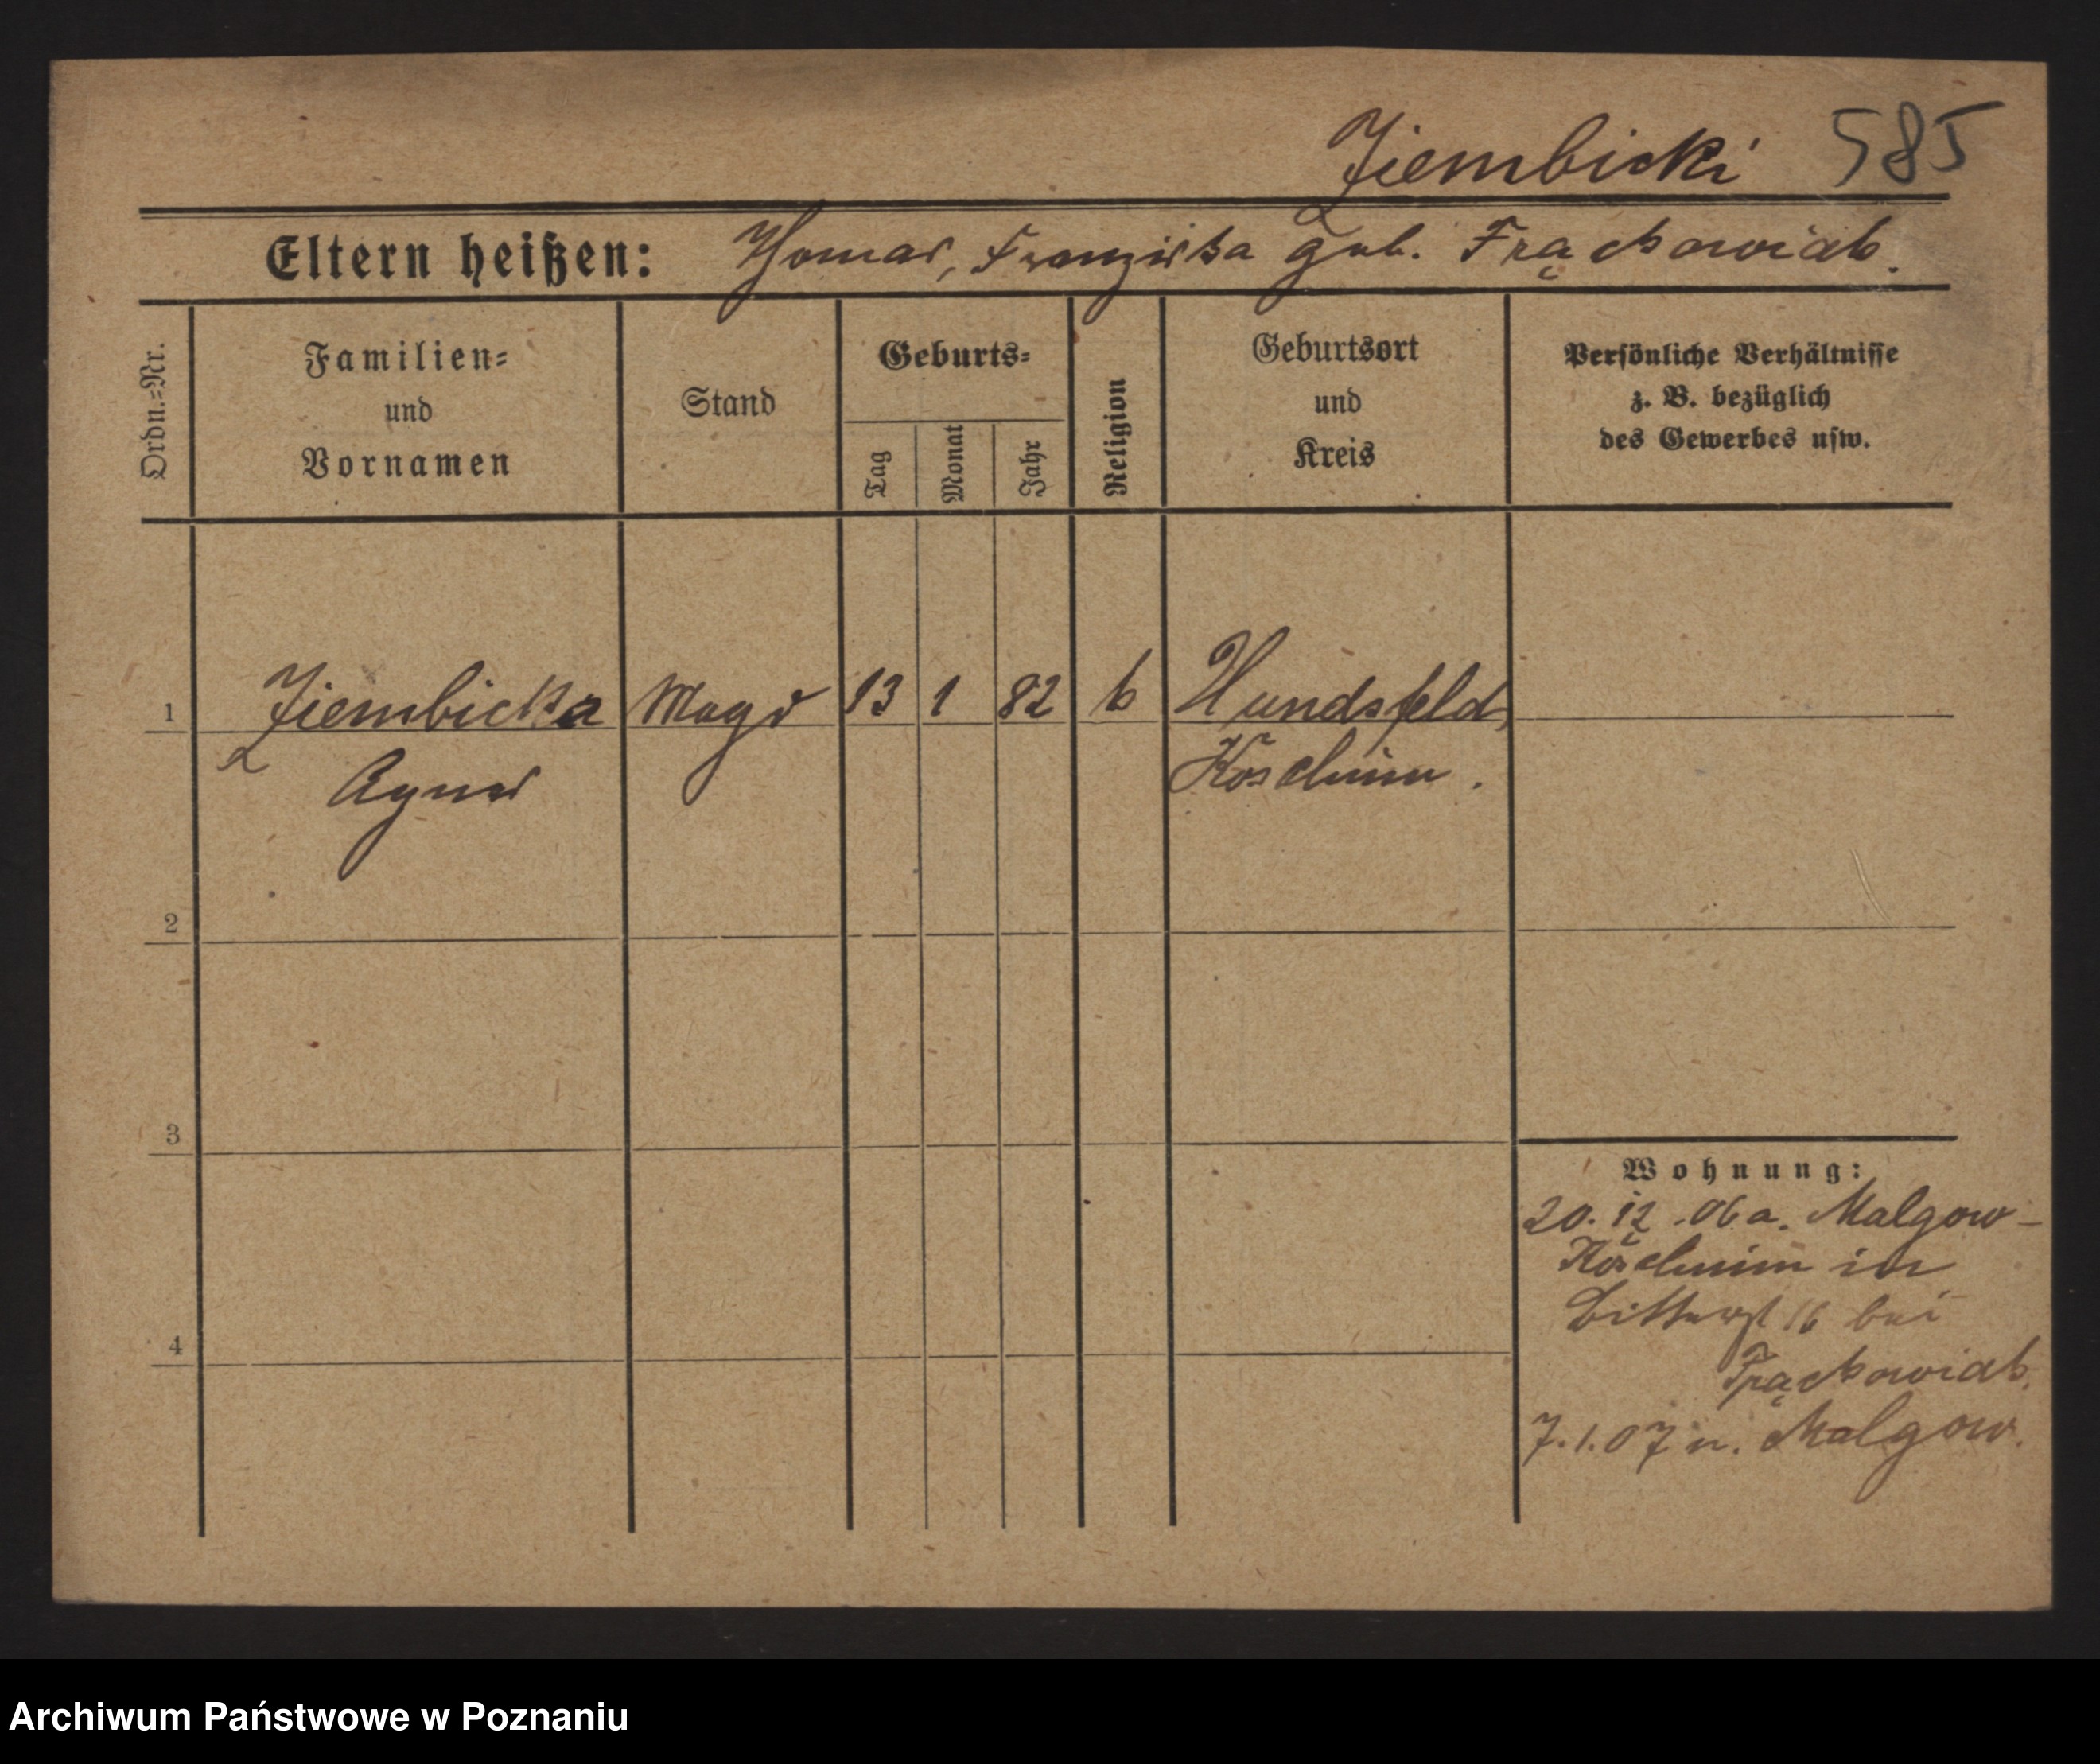 Ziembicki 585
Eltern heißen: Thomas, Franziska geb. Frąckowiak.
Ordn.=Nr.
Familien=
und
Vornamen
Stand
Geburts=
Tag
Monat
Jahr
Religion
Geburtsort
und
Kreis
Persönliche Verhältnisse
z. B. bezüglich
des Gewerbes usw.
1 Ziembicka Magd 13 1 82 k Hundsfeld,
Agnes Koschmin.
2
3
4
Wohnung:
20. 12. 06 a. Malgow-
Koschmin in
16 bei
Frąckowiak.
7.1.07 n. Malgow.
Archiwum Państwowe w Poznaniu